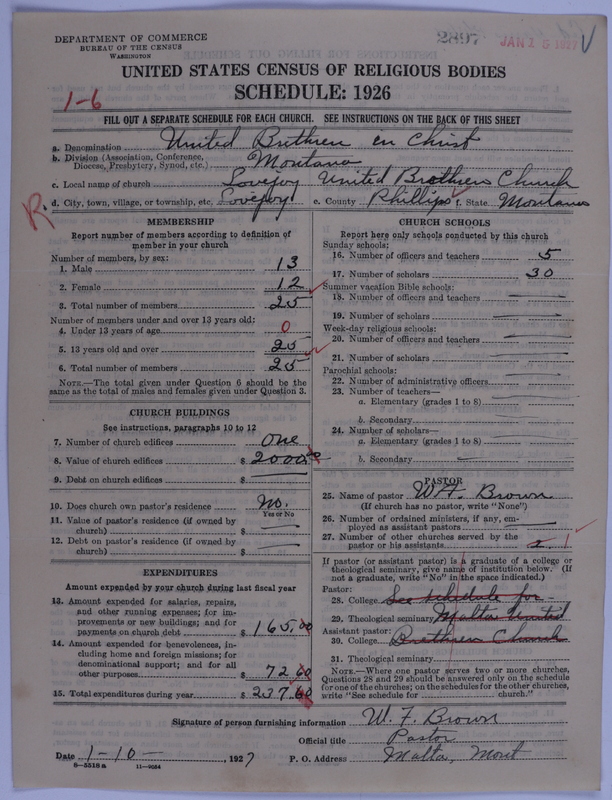 DEPARTMENT OF COMMERCE
BUREAU OF THE CENSUS
WASHINGTON
2897
JAN 15 1927
UNITED STATES CENSUS OF RELIGIOUS BODIES
SCHEDULE: 1926
1-6
FILL OUT A SEPARATE SCHEDULE FOR EACH CHURCH. SEE INSTRUCTIONS ON THE BACK OF THIS SHEET
a. Denomination United Brethren in Christ
b. Division (Association, Conference, Diocese, Presbytery, Synod, etc.) Montana
c. Local name of church Lovejoy United Brethren Church
R. d. City, town, village, or township, etc. Lovejoy e. County Phillips f. State Montana
MEMBERSHIP
Report number of members according to definition of
member in your church
Number of members, by sex:
1. Male 13
2. Female 12
3. Total number of members 25
Number of members under and over 13 years old:
4. Under 13 years of age 0
5. 13 years old and over 25
6. Total number of members 25
NOTE.—The total given under Question 6 should be the
same as the total of males and females given under Question 3.
CHURCH BUILDINGS
See instructions, paragraphs 10 to 12
7. Number of church edifices one
8. Value of church edifices $ 2000.00
9. Debt on church edifices $
10. Does church own pastor's residence No.
Yes or No
11. Value of pastor's residence (if owned by
church) $
12. Debt on pastor's residence (if owned by
church) $
EXPENDITURES
Amount expended by your church during last fiscal year
13. Amount expended for salaries, repairs,
and other running expenses; for im-
provements or new buildings; and for
payments on church debt $ 165.00
14. Amount expended for benevolences, in-
cluding home and foreign missions; for
denominational support; and for all
other purposes $ 72.60
15. Total expenditures during year $ 237.60
CHURCH SCHOOLS
Report here only schools conducted by this church
Sunday schools:
16. Number of officers and teachers 5
17. Number of scholars 30
Summer vacation Bible schools:
18. Number of officers and teachers
19. Number of scholars
Week-day religious schools:
20. Number of officers and teachers
21. Number of scholars
Parochial schools:
22. Number of administrative officers
23. Number of teachers—
a. Elementary (grades 1 to 8)
b. Secondary
24. Number of scholars—
a. Elementary (grades 1 to 8)
b. Secondary
PASTOR
25. Name of pastor W.F. Brown
(If church has no pastor, write "None")
26. Number of ordained ministers, if any, em-
ployed as assistant pastors
27. Number of other churches served by the
pastor or his assistants 2. 1
If pastor (or assistant pastor) is a graduate of a college or
theological seminary, give name of institution below. (If
not a graduate, write "No" in the space indicated.)
Pastor:
28. College See schedule for
29. Theological seminary Malta United
Assistant pastor:
30. College Brethren Church
31. Theological seminary
NOTE.—Where one pastor serves two or more churches,
Questions 28 and 29 should be answered only on the schedule
for one of the churches; on the schedules for the other churches,
write "See schedule for church."
Signature of person furnishing information W. F. Brown
Official title Pastor
Date 1-10-, 1927 P. O. Address Malta, Mont
8—5518a 11—9054